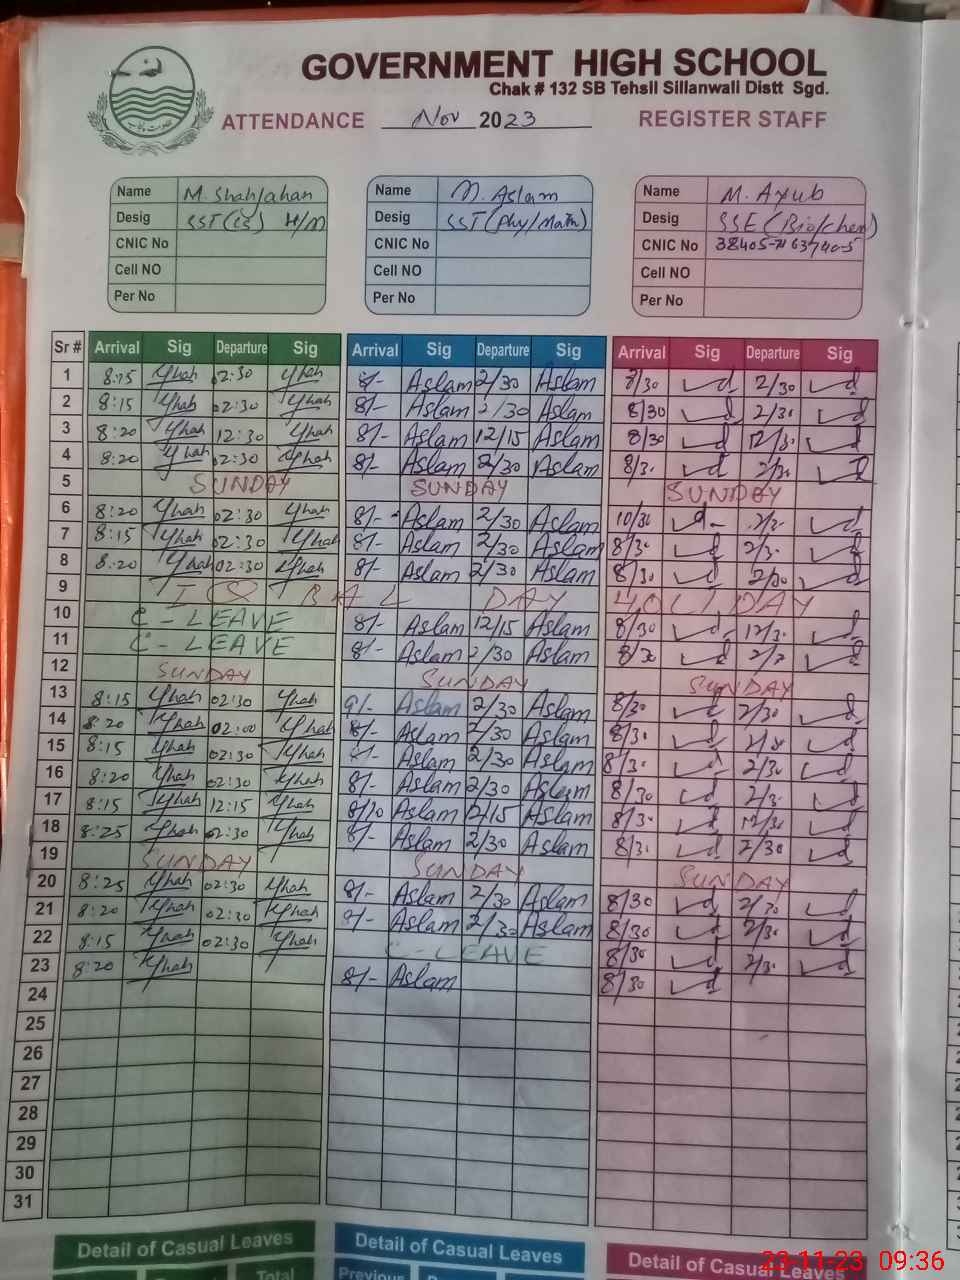 GOVERNMENT HIGH SCHOOL
Chak # 132 SB Tehsil Sillanwali Distt Sgd.
ATTENDANCE Nov 2023 REGISTER STAFF
Name M. Shahjahan Name M. Aslam Name M. Ayub
Desig SST (CS) H/M Desig SST (Phy/Math) Desig SSE (Bio/chem)
CNIC No CNIC No CNIC No
Cell NO Cell NO Cell NO
Per No Per No Per No
Sr # Arrival Sig Departure Sig Arrival Sig Departure Sig Arrival Sig Departure Sig
1 8:15 02:30 8/- Aslam 2/30 Aslam 8/30 2/30
2 8:15 02:30 8/- Aslam 2/30 Aslam 8/30 2/30
3 8:20 12:30 8/- Aslam 12/15 Aslam 8/30 12/30
4 8:20 02:30 8/- Aslam 2/30 Aslam 8/30 2/30
5 SUNDAY SUNDAY SUNDAY
6 8:20 02:30 8/- Aslam 2/30 Aslam 10/30 2/30
7 8:15 02:30 8/- Aslam 2/30 Aslam 8/30 2/30
8 8:20 02:30 8/- Aslam 2/30 Aslam 8/30 2/30
9 IQBAL DAY HOLIDAY
10 C-LEAVE 8/- Aslam 12/15 Aslam 8/30 12/30
11 C-LEAVE 8/- Aslam 2/30 Aslam 8/30 2/30
12 SUNDAY SUNDAY SUNDAY
13 8:15 02:30 Aslam 2/30 Aslam 8/30 2/30
14 8:20 02:00 8/- Aslam 2/30 Aslam 8/30
15 8:15 02:30 Aslam 2/30 Aslam 8/30 2/30
16 8:20 02:30 8/- Aslam 2/30 Aslam 8/30 2/30
17 8:15 12:15 Aslam 12/15 Aslam 8/30 12/30
18 8:25 02:30 8/- Aslam 2/30 Aslam 8/30 2/30
19 SUNDAY SUNDAY SUNDAY
20 8:25 02:30 8/- Aslam 2/30 Aslam 8/30 2/30
21 8:20 02:30 8/- Aslam 2/30 Aslam 8/30 2/30
22 8:15 02:30 C-LEAVE 8/30 2/30
23 8:20 8/- Aslam 8/30
24
25
26
27
28
29
30
31
Detail of Casual Leaves Detail of Casual Leaves Detail of Casual Leaves
Total Previous
23-11-23 09:36